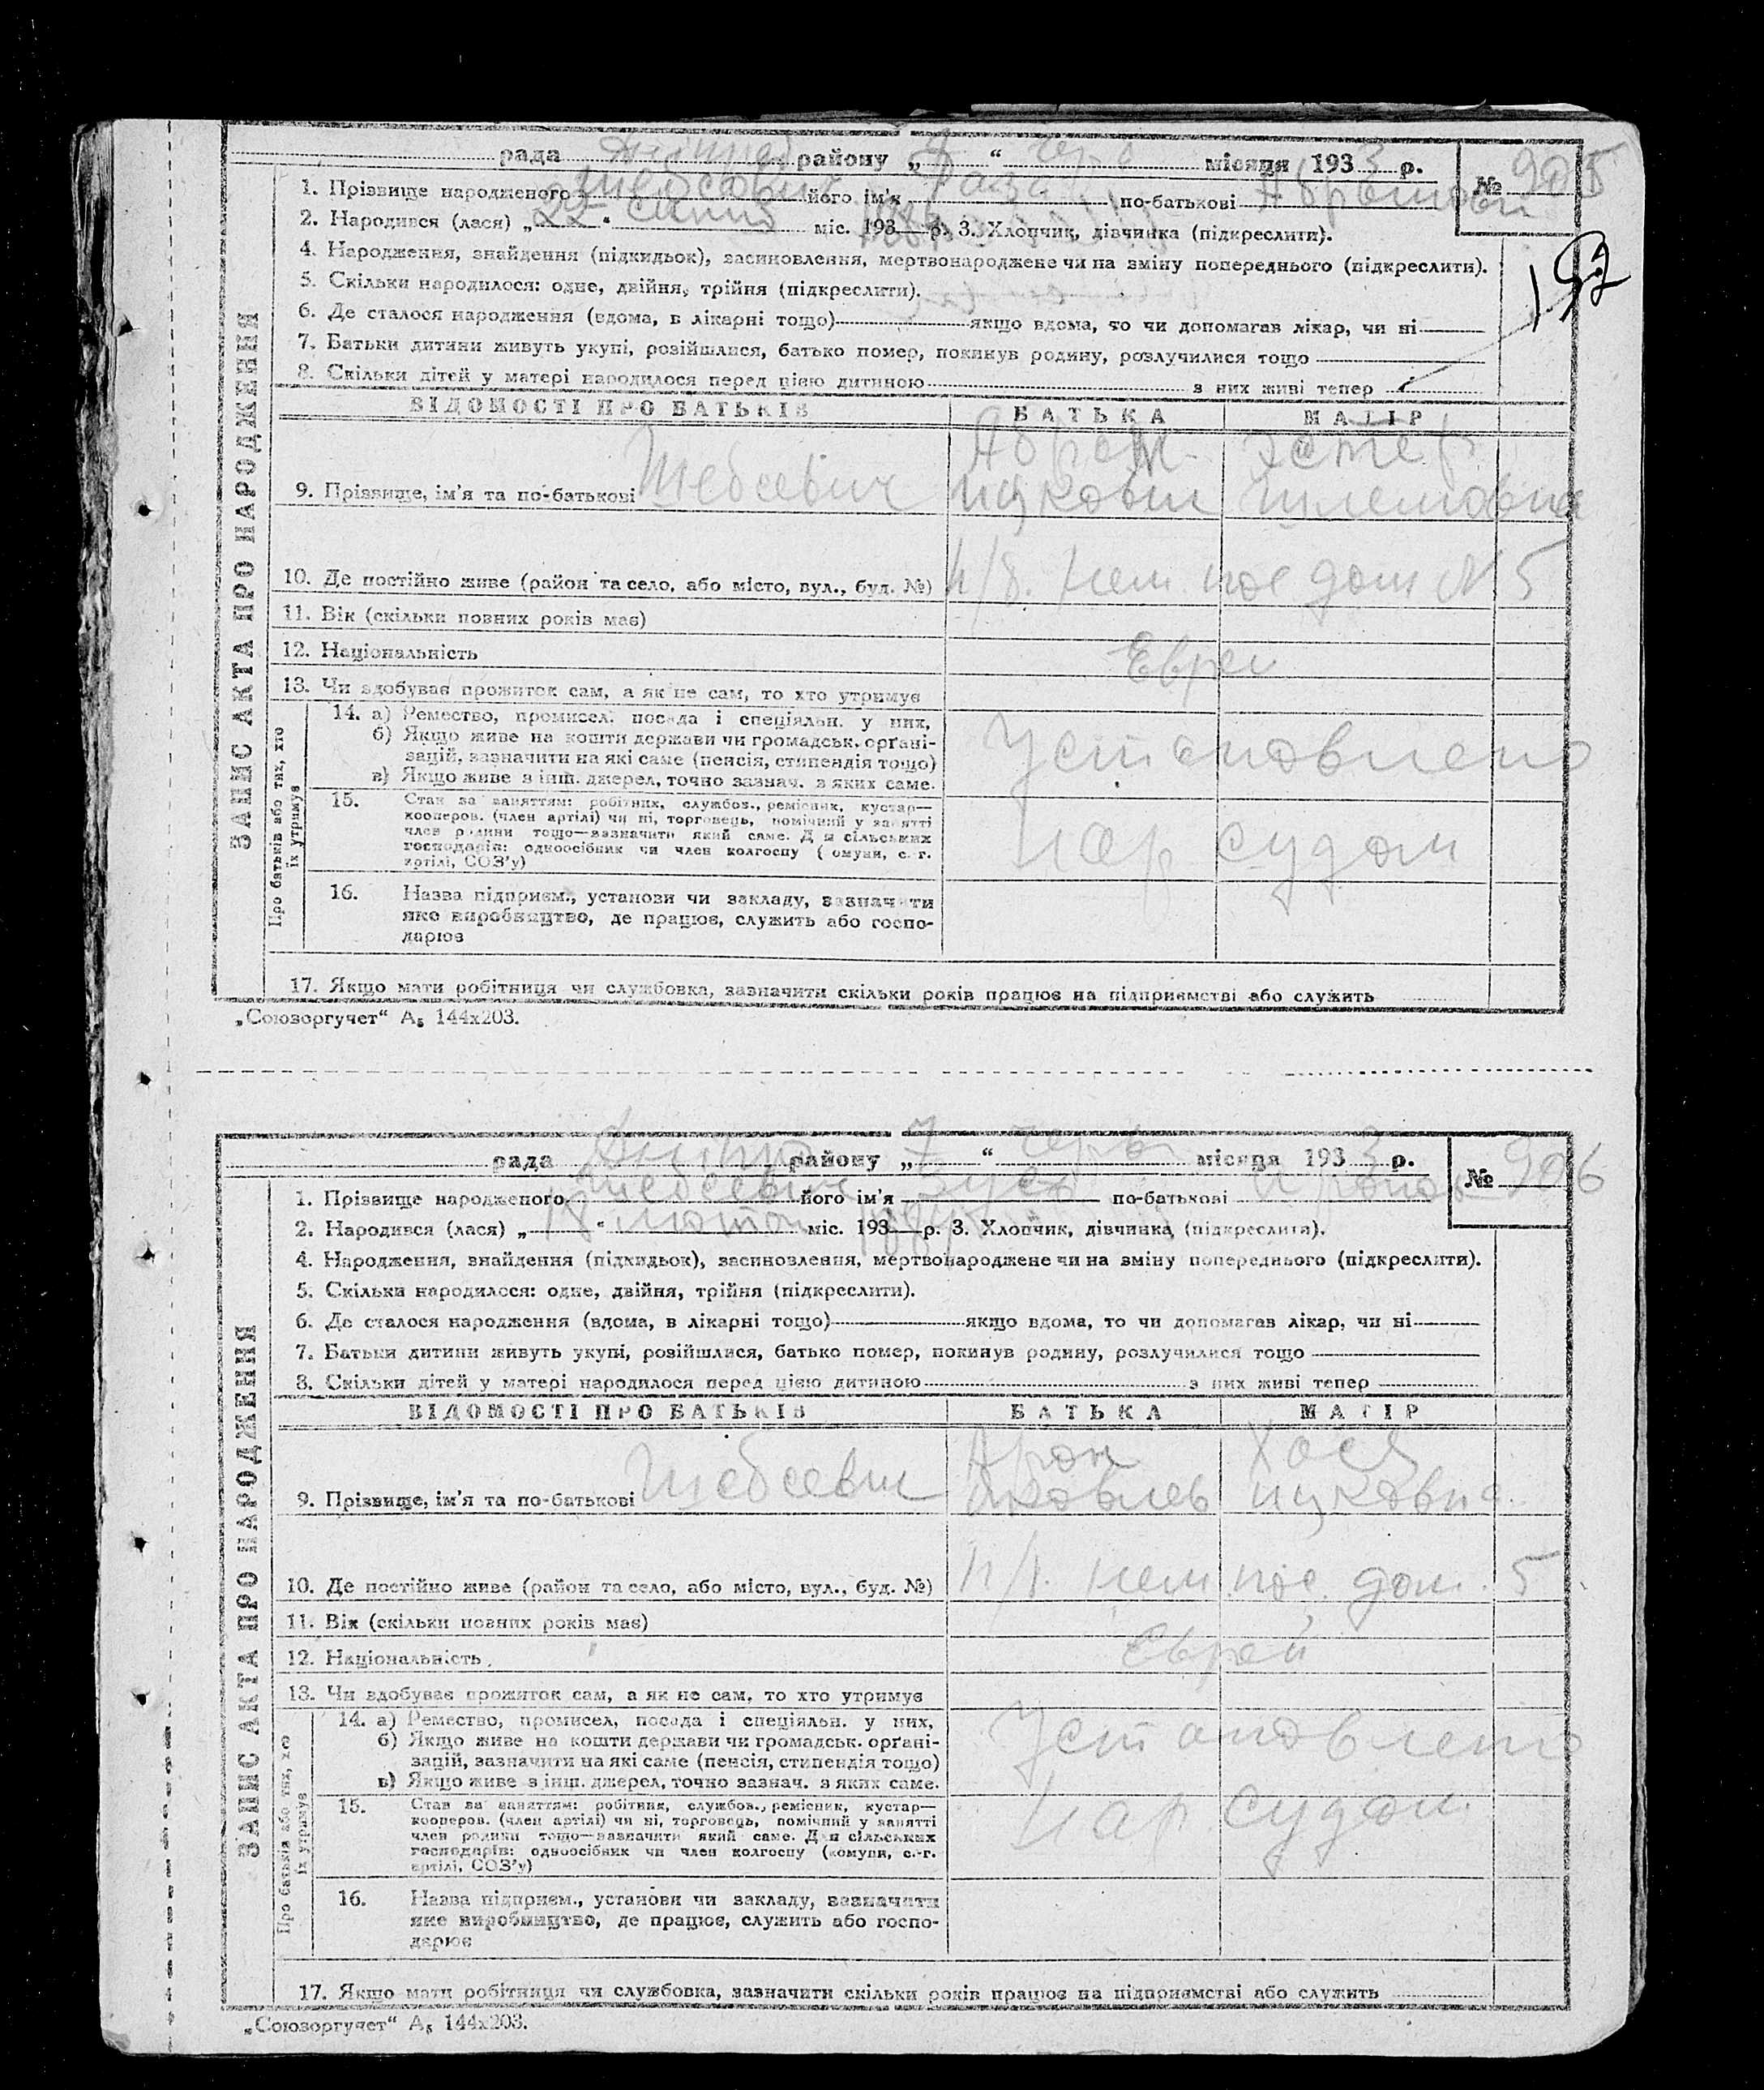 рада району „7“ черв місяця 1933 р. № 905
1. Прізвище народженого Шебсевич його ім'я по-батькові
192
2. Народився (лася) „22“ міс. 193 р. 3. Хлопчик, дівчинка (підкреслити).
4. Народження, знайдення (підкидьок), засиновлення, мертвонароджене чи на зміну попереднього (підкреслити).
5. Скільки народилося: одне, двійня, трійня (підкреслити).
6. Де сталося народження (вдома, в лікарні тощо) якщо вдома, то чи допомагав лікар, чи ні
7. Батьки дитини живуть укупі, розійшлися, батько помер, покинув родину, розлучилися тощо
8. Скільки дітей у матері народилося перед цією дитиною з них живі тепер
ЗАПИС АКТА ПРО НАРОДЖЕННЯ
ВІДОМОСТІ ПРО БАТЬКІВ БАТЬКА МАТІР
Абрам Эстер
9. Прізвище, ім'я та по-батькові Шебсевич Ицкович Шлемовна
10. Де постійно живе (район та село, або місто, вул., буд. №) Н/д. нем. пос дом № 5
11. Вік (скільки повних років має)
12. Національність Евреи
13. Чи здобуває прожиток сам, а як не сам, то хто утримує
Про батьків або тих, хто їх утримує
14. а) Ремество, промисел, посада і спеціяльн. у них,
б) Якщо живе на кошти держави чи громадськ. орґані-
зацій, зазначити на які саме (пенсія, стипендія тощо)
в) Якщо живе з інш. джерел, точно зазнач. з яких саме.
Установлено
15. Стан за заняттям: робітник, службов., ремісник, кустар—
кооперов. (член артілі) чи ні, торговець, помічний у занятті
член родини тощо—зазначити який саме. Для сільських
господарів: одноосібник чи член колгоспу (комуни, с.-г.
артілі, СОЗ'у)
нар судом
16. Назва підприєм., установи чи закладу, зазначити
яке виробництво, де працює, служить або госпо-
дарює
17. Якщо мати робітниця чи службовка, зазначити скільки років працює на підприємстві або служить
„Союзоргучет“ А₅ 144х203.
рада району „7“ черв місяця 1933 р. № 906
1. Прізвище народженого Шебсевич його ім'я по-батькові
2. Народився (лася) „18“ міс. 193 р. 3. Хлопчик, дівчинка (підкреслити).
4. Народження, знайдення (підкидьок), засиновлення, мертвонароджене чи на зміну попереднього (підкреслити).
5. Скільки народилося: одне, двійня, трійня (підкреслити).
6. Де сталося народження (вдома, в лікарні тощо) якщо вдома, то чи допомагав лікар, чи ні
7. Батьки дитини живуть укупі, розійшлися, батько помер, покинув родину, розлучилися тощо
8. Скільки дітей у матері народилося перед цією дитиною з них живі тепер
ЗАПИС АКТА ПРО НАРОДЖЕННЯ
ВІДОМОСТІ ПРО БАТЬКІВ БАТЬКА МАТІР
Арон Хася
9. Прізвище, ім'я та по-батькові Шебсевич Ицковна
10. Де постійно живе (район та село, або місто, вул., буд. №) Н/д. нем пос. дом. 5
11. Вік (скільки повних років має)
12. Національність Єврей
13. Чи здобуває прожиток сам, а як не сам, то хто утримує
Про батьків або тих, хто їх утримує
14. а) Ремество, промисел, посада і спеціяльн. у них,
б) Якщо живе на кошти держави чи громадськ. орґані-
зацій, зазначити на які саме (пенсія, стипендія тощо)
в) Якщо живе з інш. джерел, точно зазнач. з яких саме.
Установлено
15. Стан за заняттям: робітник, службов., ремісник, кустар—
кооперов. (член артілі) чи ні, торговець, помічний у занятті
член родини тощо—зазначити який саме. Для сільських
господарів: одноосібник чи член колгоспу (комуни, с.-г.
артілі, СОЗ'у)
нар судом.
16. Назва підприєм., установи чи закладу, зазначити
яке виробництво, де працює, служить або госпо-
дарює
17. Якщо мати робітниця чи службовка, зазначити скільки років працює на підприємстві або служить
„Союзоргучет“ А₅ 144х203.